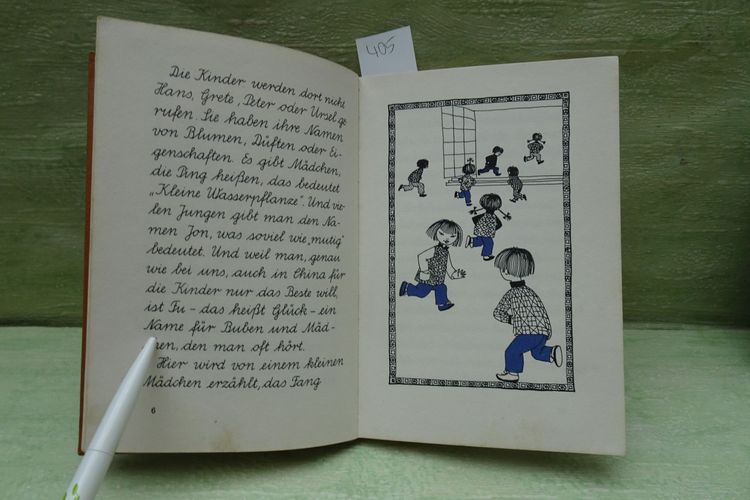 405
Die Kinder werden dort nicht
Hans, Grete, Peter oder Ursel ge
rufen. Sie haben ihre Namen
von Blumen, Düften oder Ei-
genschaften. Es gibt Mädchen,
die Ping heißen, das bedeutet
„Kleine Wasserpflanze". Und vie-
len Jungen gibt man den Na-
men Jon, was soviel wie „mutig"
bedeutet. Und weil man, genau
wie bei uns, auch in China für
die Kinder nur das Beste will,
ist Fu - das heißt Glück - ein
Name für Buben und Mäd-
chen, den man oft hört.
Hier wird von einem kleinen
Mädchen erzählt, das Fang
6